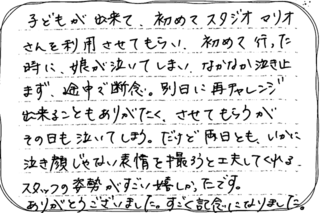 子どもが出来て、初めてスタジオマリオ
さんを利用させてもらい、初めて行った
時に、娘が泣いてしまい、なかなか泣き止
まず、途中で断念。別日に再チャレンジ
出来ることもありがたく、させてもらうが
その日も泣いてしまう。だけど両日とも、いかに
泣き顔じゃない表情を撮ろうと工夫してくれる
スタッフの姿勢がすごい嬉しかったです。
ありがとうございました。すごく記念になりました。